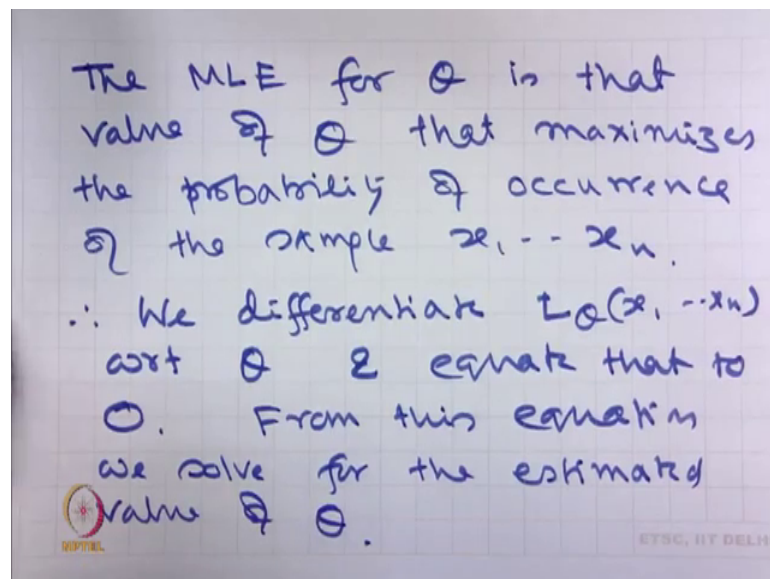 The MLE for θ is that
value of θ that maximizes
the probability of occurrence
of the sample x₁ -- xₙ.
∴ We differentiate L_θ(x₁ --xₙ)
wrt θ & equate that to
0. From this equation
we solve for the estimated
value of θ.
NPTEL
ETSC, IIT DELH